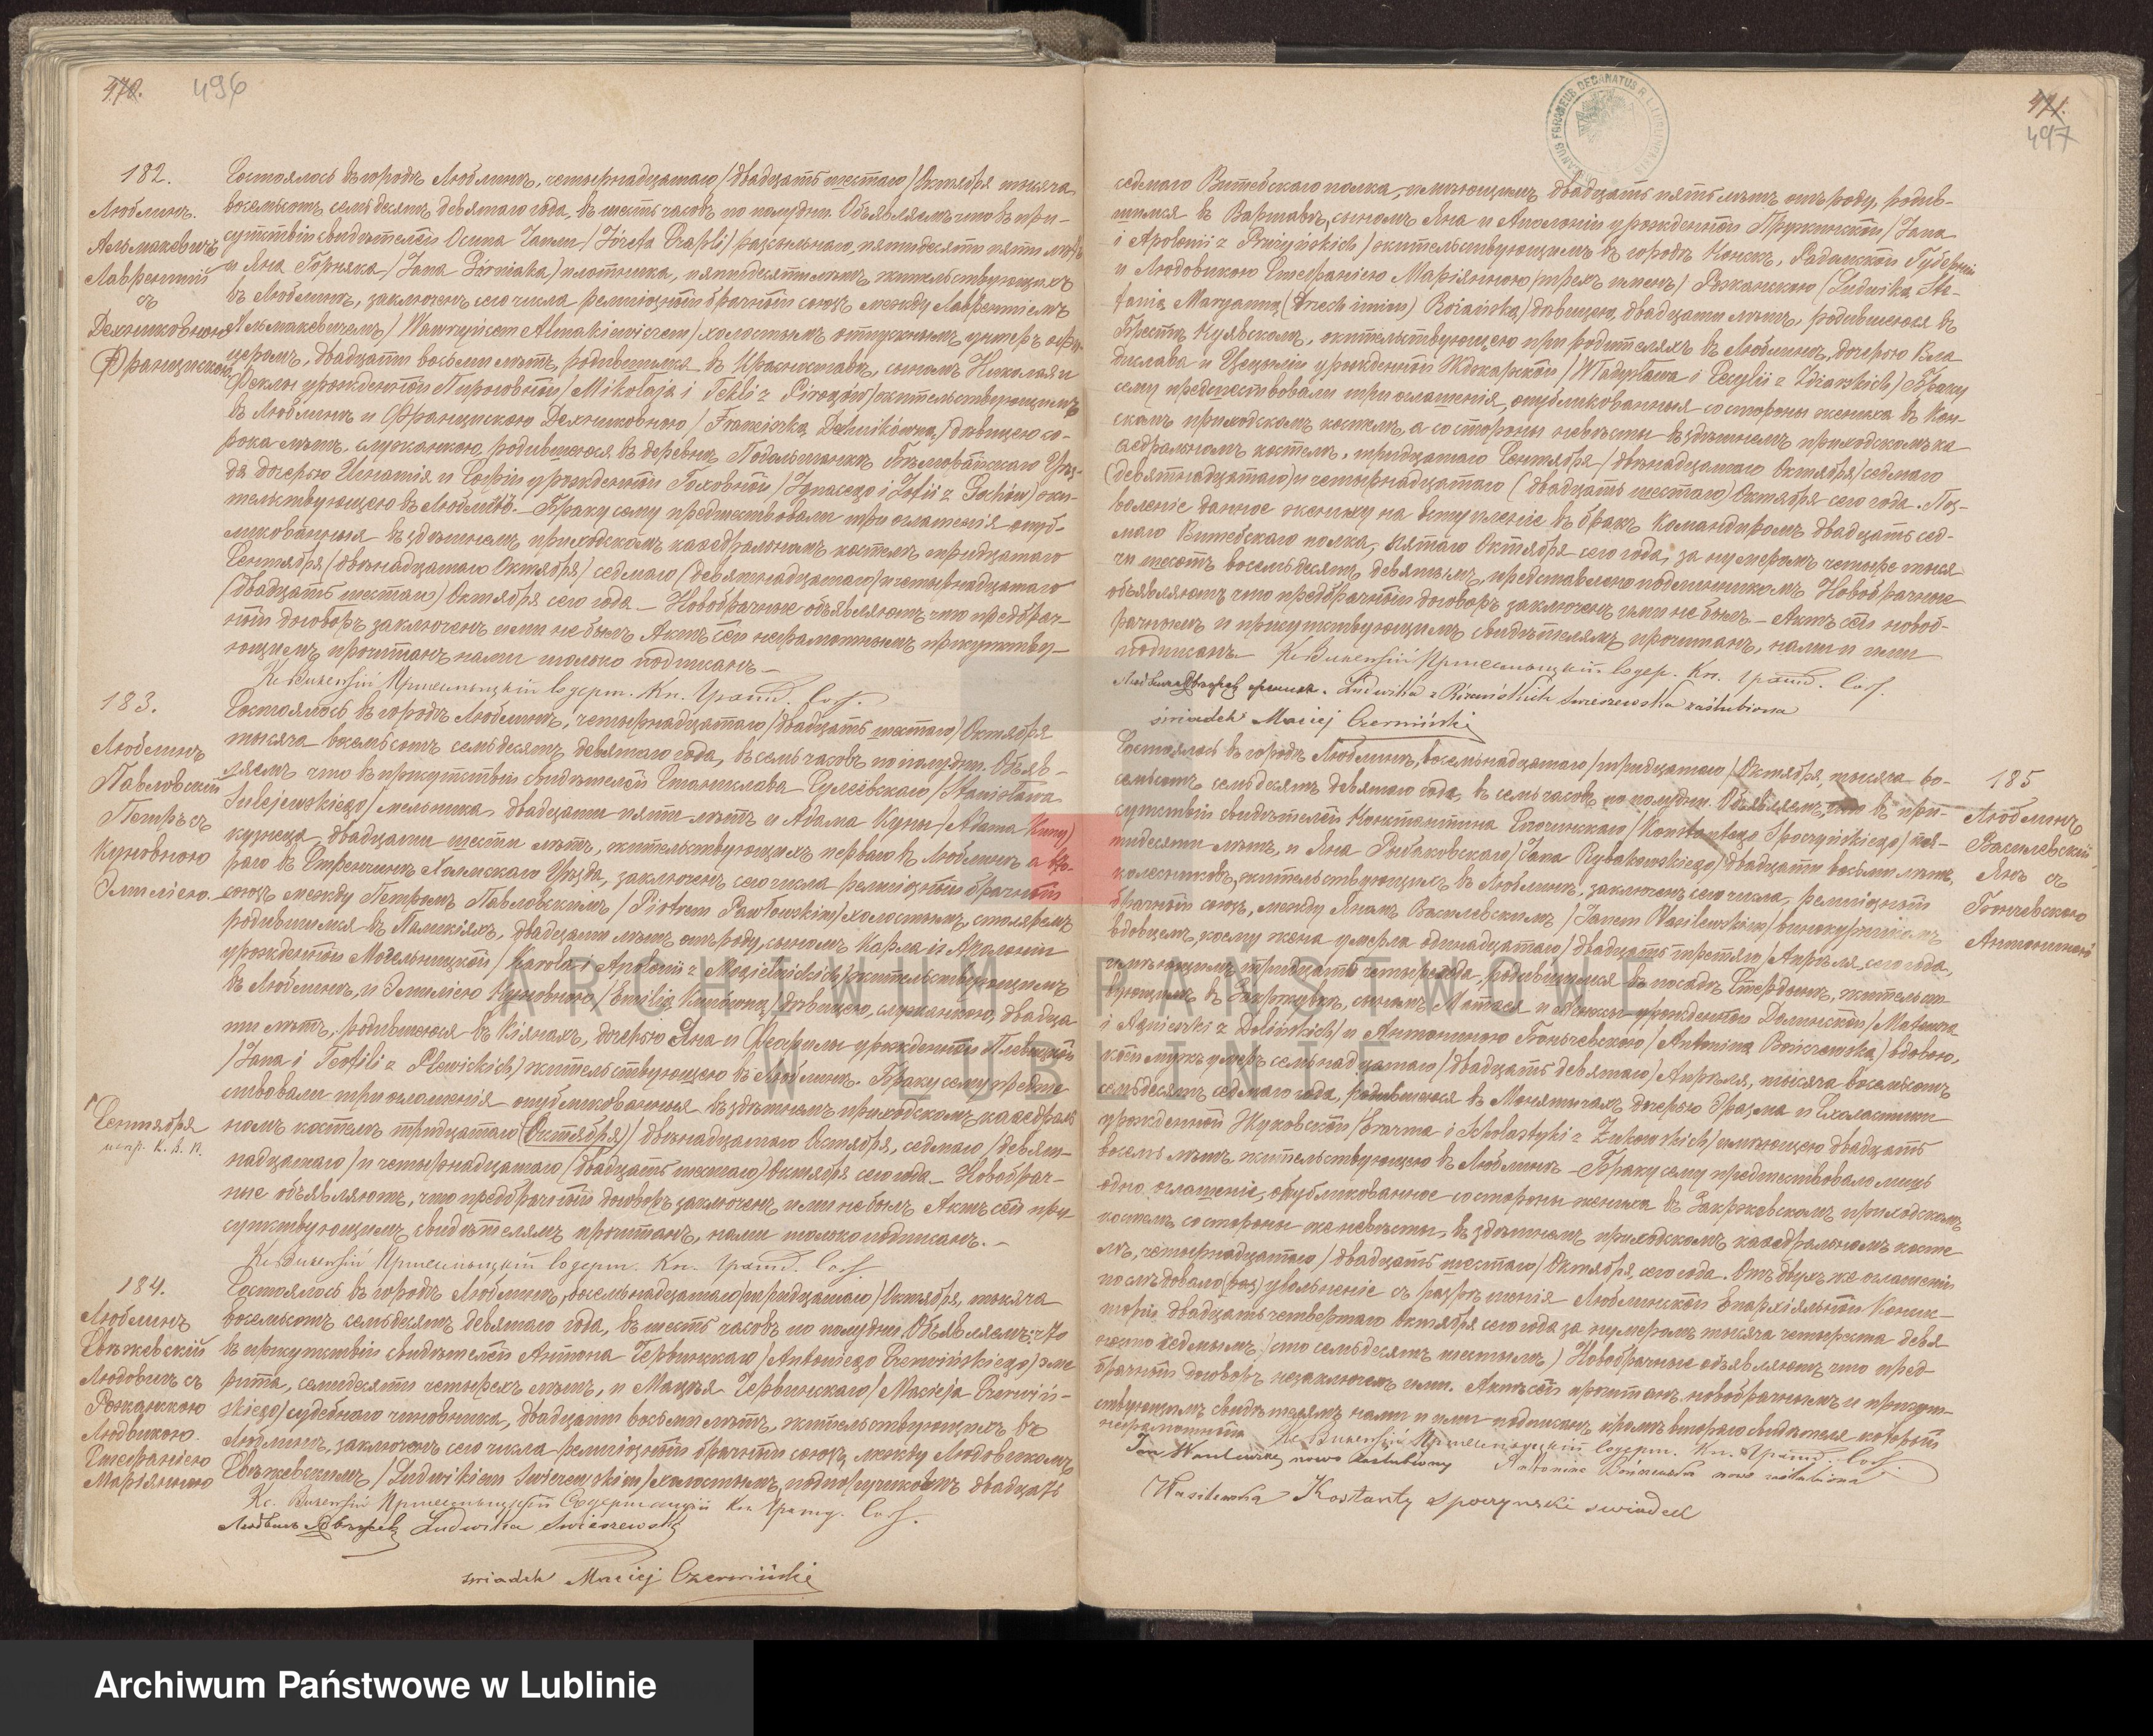 478. 496
182.
Люблинъ.
Альмакевичъ
Лаврентій
съ
Дехниковною
Францискою
Состоялось въ городѣ Люблинѣ, четырнадцатаго /двадцать шестаго/ Октября тысяча
восемьсотъ семьдесятъ девятаго года, въ шесть часовъ по полудни. Объявляемъ что въ при-
сутствіи свидѣтелей Осипа Чапли /Józefa Czapli/ разсыльнаго, пятидесяти пяти лѣтъ
и Яна Горняка /Jana Górniaka/ плотника, пятидесяти лѣтъ, жительствующихъ
въ Люблинѣ, заключенъ сего числа религіозный брачный союзъ между Лаврентіемъ
Альмакевичемъ /Wawrzyńcem Almakiewiczem/ холостымъ отпускнымъ унтеръ офи-
церомъ, двадцати восьми лѣтъ, родившимся въ Красноставѣ, сыномъ Николая и
Феклы урожденной Пироговной /Mikołaja i Tekli z Pirogów/ жительствующимъ
въ Люблинѣ и Францискою Дехниковною /Franciszką Dechnikówną/ дѣвицею со-
рока лѣтъ, служанкою, родившеюся въ деревнѣ Подольшанка Бѣлговайскаго Уѣз-
да дочерью Игнатія и Софіи урожденной Гоховной /Ignacego i Zofii z Gochów/ жи-
тельствующею въ Люблинѣ. Браку сему предшествовали три оглашенія опуб-
ликованныя въ здѣшнемъ приходскомъ каѳедральномъ костелѣ тридцатаго
Сентября /двѣнадцатаго Октября/ седмаго /девятнадцатаго/ и четырнадцатаго
(двадцать шестаго) Октября сего года. Новобрачные объявляютъ что предбрач-
ный договоръ заключенъ ими не былъ. Актъ сей неграмотнымъ присутству-
ющимъ прочитанъ нами только подписанъ.
183.
Люблинъ
Павловскій
Петръ съ
Куновною
Эмиліею.
Состоялось въ городѣ Люблинѣ, четырнадцатаго /двадцать шестаго/ Октября
тысяча восемьсотъ семьдесятъ девятаго года, въ семь часовъ по полудни. Объяв-
ляемъ что въ присутствіи свидѣтелей Станислава Сулеёвскаго /Stanisława
Sulejewskiego/ мельника, двадцати пяти лѣтъ и Адама Куны /Adama Kuny/
кузнеца, двадцати шести лѣтъ, жительствующихъ перваго въ Люблинѣ а вто-
раго въ Стренчинѣ Холмскаго Уѣзда, заключенъ сего числа религіозный брачный
союзъ между Петромъ Павловскимъ /Piotrem Pawłowskim/ холостымъ, столяремъ
родившимся въ Паликіяхъ, двадцати лѣтъ отъ роду, сыномъ Карла и Аполоніи
урожденной Могельницкой /Karola i Apolonii z Mogielnickich/ жительствующимъ
въ Люблинѣ, и Эмиліею Куновною /Emilią Kunówną/ дѣвицею, служанкою, двадца
ти лѣтъ, родившеюся въ Кіянахъ, дочерью Яна и Ѳеофилы урожденной Плевицкой
/Jana i Teofili z Plewickich/ жительствующею въ Люблинѣ. Браку сему предше
ствовали три оглашенія опубликованныя въ здѣшнемъ приходскомъ каѳедраль
номъ костелѣ тридцатаго (Октября) /двѣнадцатаго Октября, седмаго /девят-
надцатаго/ и четырнадцатаго /двадцать шестаго/ Октября сего года. Новобрач-
ные объявляютъ, что предбрачный договоръ заключенъ ими не былъ. Актъ сей при
сутствующимъ свидѣтелямъ прочитанъ, нами только подписанъ.
Сентября
испр. К. В. П.
184.
Люблинъ
Свѣжевскій
Людовикъ съ
Рожанскою
Людвикою.
Стефаніею
Маріянною
Состоялось въ городѣ Люблинѣ, восемьнадцатаго /тридцатаго/ Октября, тысяча
восемьсотъ семьдесятъ девятаго года, въ шесть часовъ по полудни. Объявляемъ что
въ присутствіи свидѣтелей Антона Червинскаго /Antoniego Czerwińskiego/ эме
рита, семидесяти четырехъ лѣтъ, и Мацѣя Червинскаго /Macieja Czerwiń-
skiego/ судебнаго чиновника, двадцати восьми лѣтъ, жительствующихъ въ
Люблинѣ, заключенъ сего числа религіозный брачный союзъ между Людовикомъ
Свѣжевскимъ /Ludwikiem Świeżewskim/ холостымъ, подпоручикомъ двадцать
Ludwika Świeżewska
świadek Maciej Czerwiński
471.
497
седмаго Витебскаго полка, имѣющимъ двадцать пять лѣтъ отъ роду, родив-
шимся въ Варшавѣ, сыномъ Яна и Аполоніи урожденной Пружинской /Jana
i Apolonii z Prużyńskich/ жительствующимъ въ городѣ Конскъ, Радомской Губерніи
и Людовикою Стефаніею Маріянною /трехъ именъ/ Рожанскою /Ludwiką Ste-
fanią Maryanną (trzech imion) Rożańską/ дѣвицею, двадцати лѣтъ, родившеюся въ
Брестѣ Куявскомъ, жительствующею при родителяхъ въ Люблинѣ, дочерью Вла
дислава и Цецыліи урожденной Ждзарской /Władysława i Cecylii z Zdziarskich/ Браку
сему предшествовали три оглашенія, опубликованныя со стороны жениха въ Кон-
скомъ приходскомъ костелѣ, а со стороны невѣсты въ здѣшнемъ приходскомъ ка
ѳедральномъ костелѣ, тридцатаго Сентября /двѣнадцатаго Октября/ седмаго
(девятнадцатаго) и четырнадцатаго (двадцать шестаго) Октября сего года. Поз-
воленіе данное жениху на вступленіе въ бракъ Командиромъ двадцать сед-
маго Витебскаго полка, пятаго Октября сего года, за нумеромъ четыре тыся
чи шестъ восемьдесятъ девятымъ, представлено подлинникомъ. Новобрачные
объявляютъ что предбрачный договоръ заключенъ ими не былъ. Актъ сей новоб-
рачнымъ и присутствующимъ свидѣтелямъ прочитанъ, нами и ими
подписанъ
Ludwika z Różańskich Świeżewska zaślubiona
świadek Maciej Czerwiński
185
Люблинъ
Василевскій
Янъ съ
Бончевскою
Антониною
Состоялось въ городѣ Люблинѣ, восемьнадцатаго /тридцатаго/ Октября, тысяча во-
семьсотъ семьдесятъ девятаго года, въ семь часовъ по полудни. Объявляемъ, что въ при-
сутствіи свидѣтелей Константина Спочинскаго /Konstantego Spoczyńskiego/ пя-
тидесяти лѣтъ, и Яна Рыбаковскаго /Jana Rybakowskiego/ двадцати восьми лѣтъ,
колесниковъ, жительствующихъ въ Люблинѣ, заключенъ сего числа, религіозный
брачный союзъ, между Яномъ Василевскимъ /Janem Wasilewskim/ винокурникомъ
вдовцемъ, коему жена умерла одинадцатаго /двадцать третяго/ Апрѣля, сего года,
имѣющимъ тридцать четыре года, родившимся въ посадѣ Стердынь, жительст
вующимъ въ Закржувкѣ, сыномъ Матеея и Агнешки урожденной Долинской /Mateusza
i Agnieszki z Dolińskich/ и Антониною Боньчевскою /Antoniną Bończewską/ вдовою,
коей мужъ умеръ семьнадцатаго /двадцать девятаго/ Апрѣля, тысяча восемьсотъ
семьдесятъ седмаго года, родившеюся въ Монятычахъ дочерью Эразма и Схоластики
урожденной Жуковской /Erazma i Scholastyki z Żukowskich/ имѣющею двадцать
восемь лѣтъ, жительствующею въ Люблинѣ. Браку сему предшествовало лишь
одно оглашеніе, опубликованное со стороны жениха въ Закржовскомъ приходскомъ
костелѣ, со стороны же невѣсты въ здѣшнемъ приходскомъ каѳедральномъ косте
лѣ, четырнадцатаго /двадцать шестаго/ Октября, сего года. Отъ двухъ же оглашеній
послѣдовало увольненіе съ разрѣшенія Люблинской Епархіяльной Консис-
торіи двадцать четвертаго Октября сего года за нумеромъ тысяча четыреста девя
носто седмымъ /сто семьдесятъ шестымъ/ Новобрачные объявляютъ что пред-
брачный договоръ незаключенъ ими. Актъ сей прочитанъ новобрачнымъ и присут-
ствующимъ свидѣтелямъ нами и ими подписанъ, кромѣ втораго свидѣтеля который
неграмотный
Jan Wasilewski nowo zaślubiony Antonina Bończewska nowo zaślubiona
Wasilewska Kostanty Spoczynski swiadek
ARCHIWUM PAŃSTWOWE
W LUBLINIE
Archiwum Państwowe w Lublinie